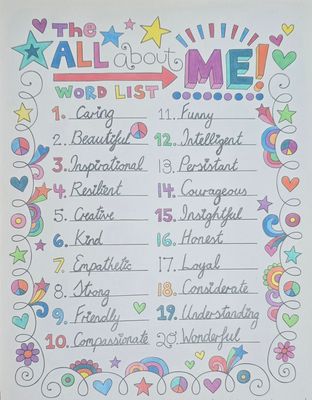 The
ALL about ME!
WORD LIST
1. Caring
2. Beautiful
3. Inspirational
4. Resilient
5. Creative
6. Kind
7. Empathetic
8. Strong
9. Friendly
10. Compassionate
11. Funny
12. Intelligent
13. Persistant
14. Courageous
15. Insightful
16. Honest
17. Loyal
18. Considerate
19. Understanding
20. Wonderful